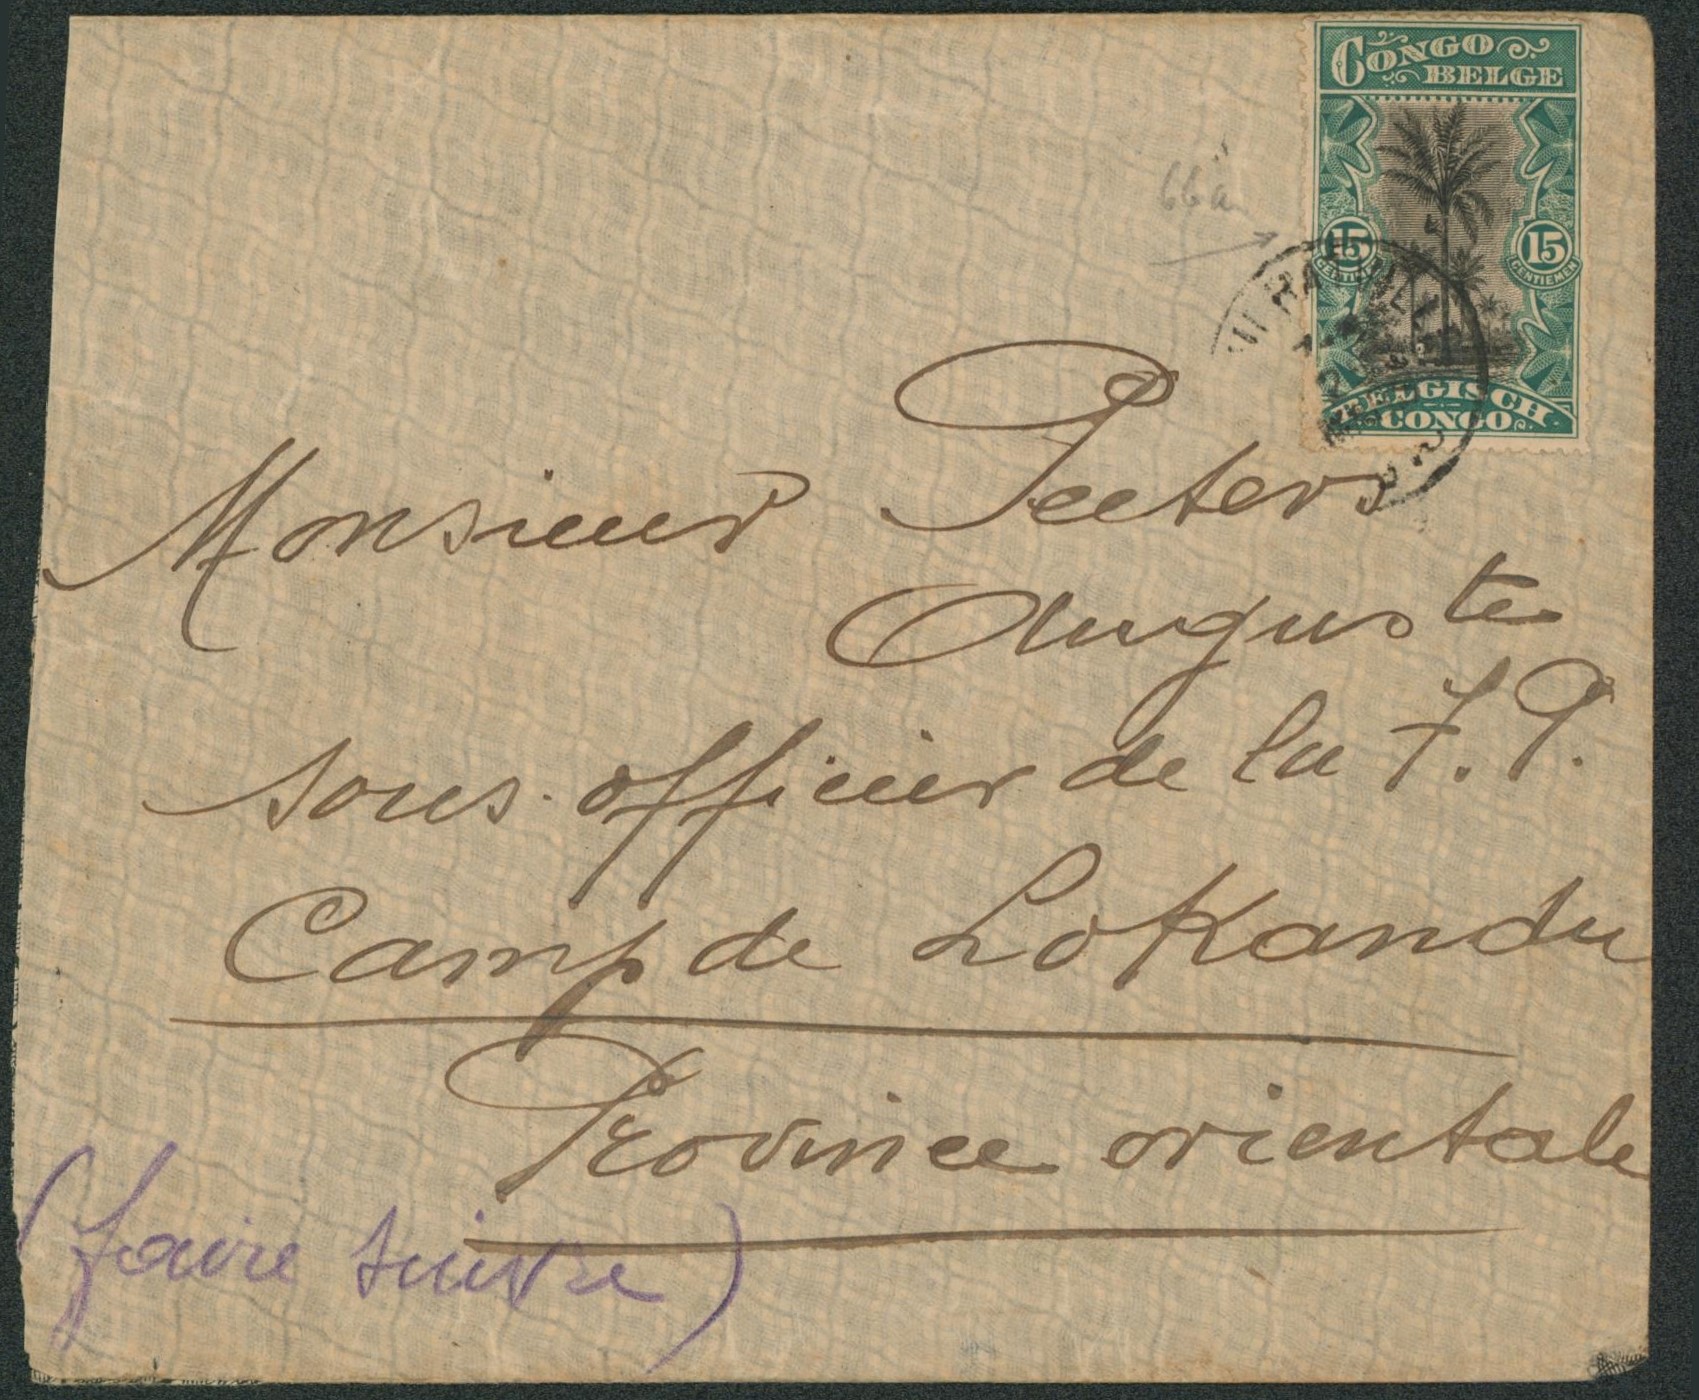 CONGO
BELGE
15 15
CENTIEMEN
BELGISCH
CONGO
66a
Monsieur Peeters
Auguste
sous-officier de la F.P.
Camp de Lokandu
Province orientale
(faire suivre)